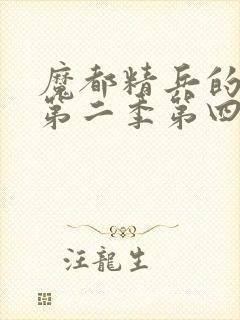 魔都精兵的
第二季第四
汪龍生